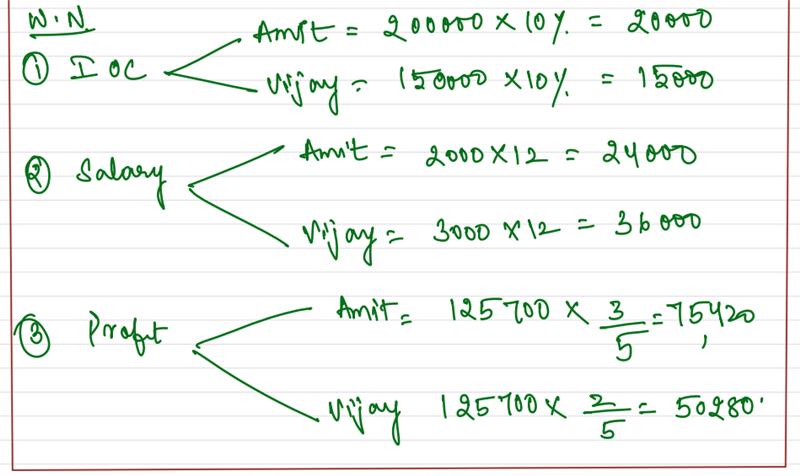 W.N.
① IOC
Amit = 200000 × 10% = 20000
Vijay = 150000 × 10% = 15000
② Salary
Amit = 2000 × 12 = 24000
Vijay = 3000 × 12 = 36000
③ Profit
Amit = 125700 × 3/5 = 75420
Vijay 125700 × 2/5 = 50280